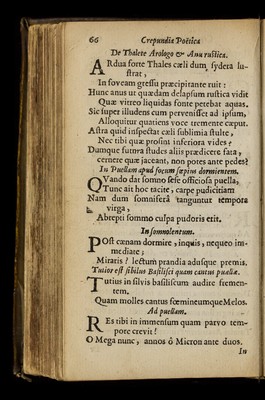 66 Crepundia Poëtica
De Thalete Astrologo & Anu rustica.
ARdua forte Thales cæli dum sydera lu-
strat,
In foveam gressu præcipitante ruit:
Hunc anus ut quædam delapsum rustica vidit
Quæ vitreo liquidas fonte petebat aquas.
Sic super illudens cum pervenisset ad ipsum,
Alloquitur quatiens voce tremente caput.
Astra quid inspectat cæli sublimia stulte,
Nec tibi quæ prosint inferiora vides?
Dumque futura studes aliis prædicere fata,
cernere quæ jaceant, non potes ante pedes?
In Puellam apud focum sæpius dormientem.
QVando dat somno sese officiosa puella,
Tunc ait hoc tacite, carpe pudicitiam
Nam dum somnifera tanguntur tempora
virga,
Abrepti sommo culpa pudoris erit.
In somnolentum.
POst cænam dormire, inquis, nequeo im-
mediate;
Miraris? lectum prandia adusque premis.
Tutior est sibilus Basilisci quam cantus puellæ.
TUtius in silvis basiliscum audire fremen-
tem,
Quam molles cantus fœmineumque Melos.
Ad puellam.
REs tibi in immensum quam parvo tem-
pore crevit!
O Mega nunc, annos ô Micron ante duos.
In